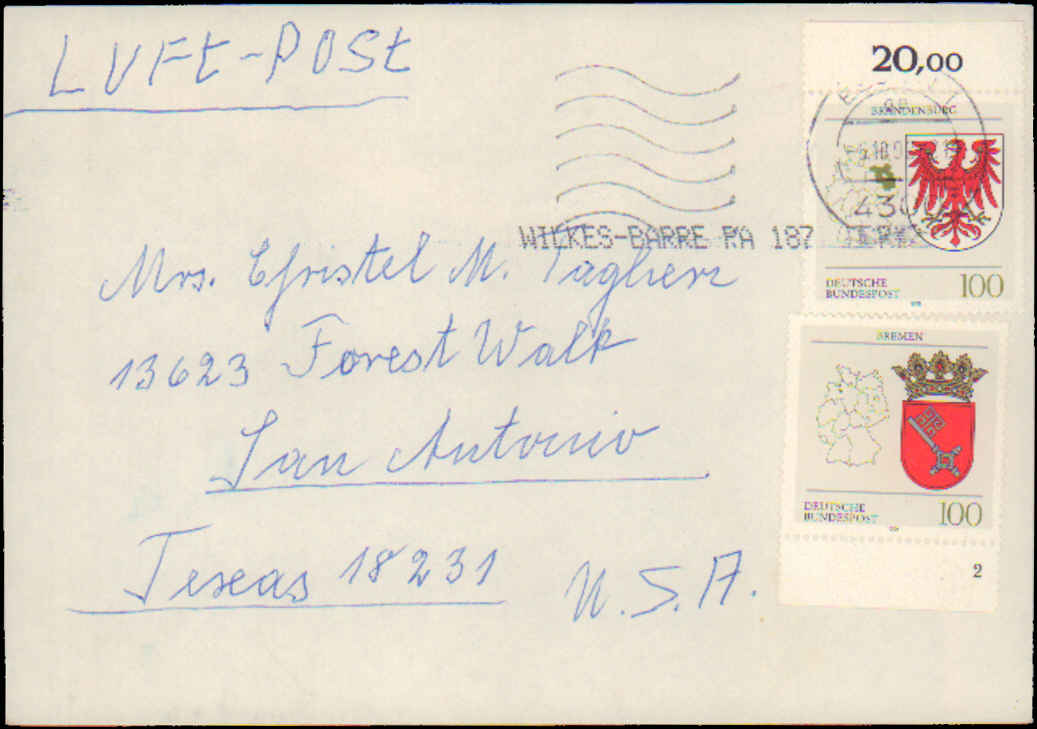 LUFt-POSt
20,00
BRANDENBURG
430
WILKES-BARRE PA 187
DEUTSCHE
BUNDESPOST
100
Mrs. Christel M.
13623 Forest Walk
San Antonio
Texas 18231
U.S.A.
BREMEN
DEUTSCHE
BUNDESPOST
100
2